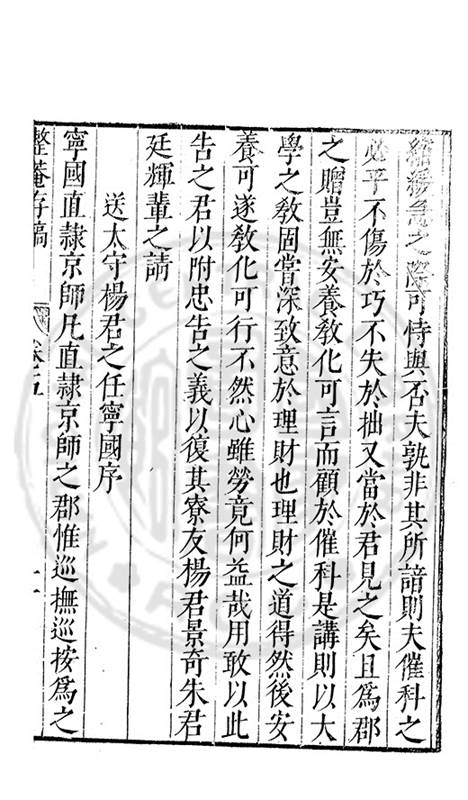 縮緩急之際可恃與否夫孰非其所諳則夫催科之
必平不傷於巧不失於拙又當於君見之矣且為郡
之贈豈無安養教化可言而顧於催科是講則以大
學之教固嘗深致意於理財也理財之道得然後安
養可遂教化可行不然心雖勞竟何益哉用敢以此
告之君以附忠告之義以復其寮友楊君景奇朱君
廷輝輩之請
送太守楊君之任寧國序
寧國直隷京師凡直隷京師之郡惟巡撫巡按為之
整菴存稿
卷五